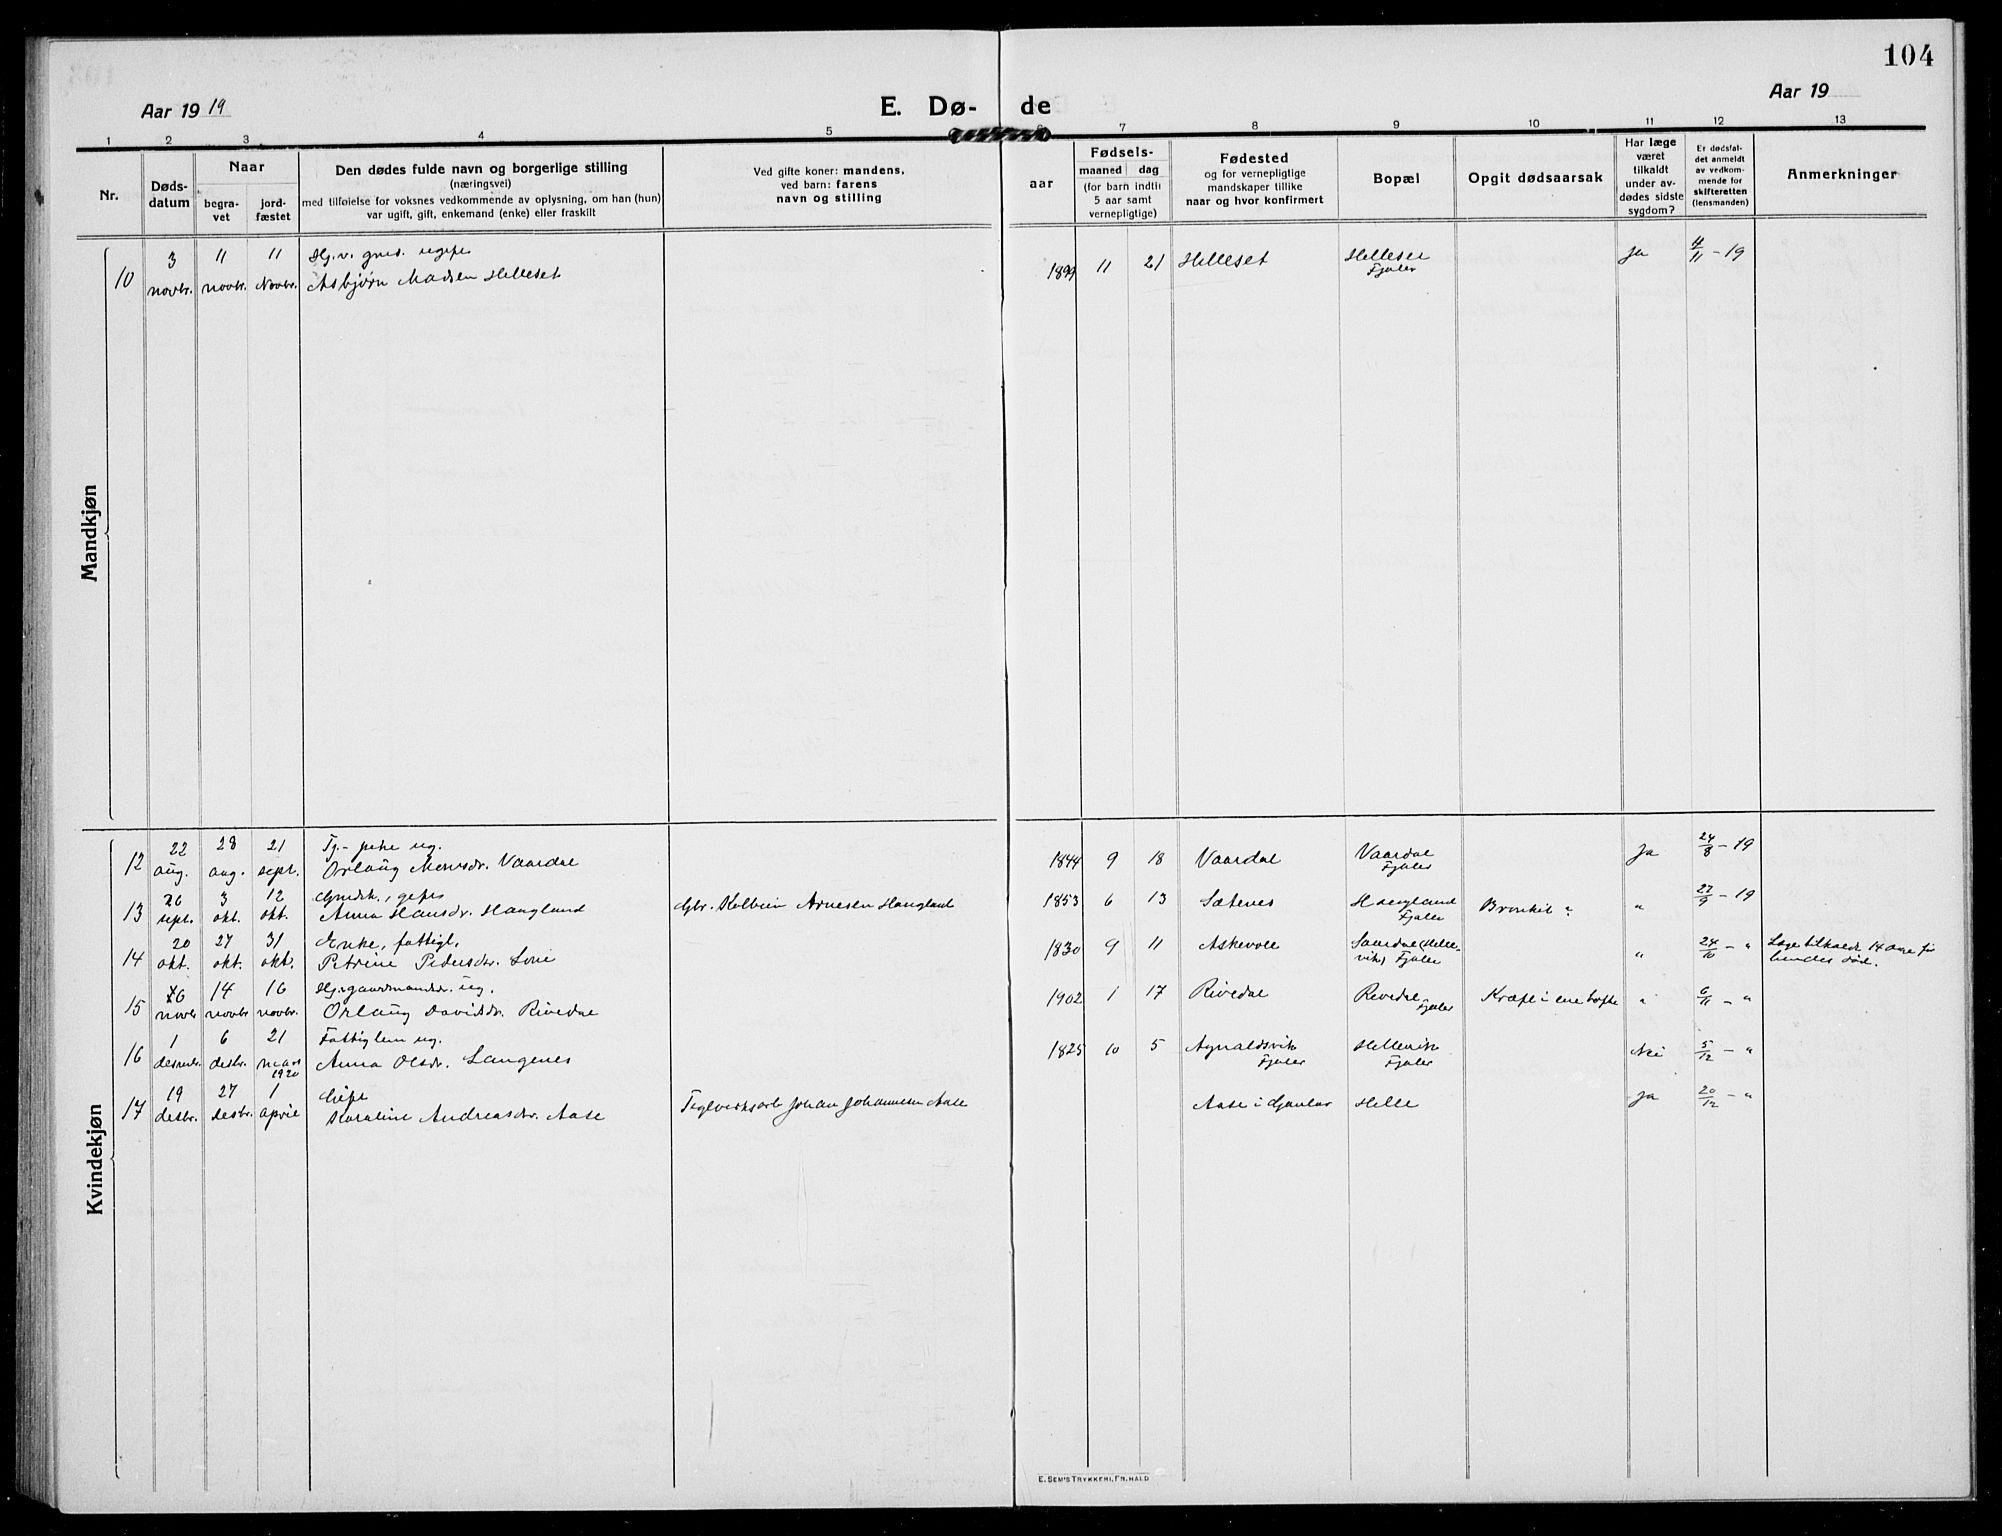 104
Aar 19 19
E. Dø-
de
Aar 19
1 2 3 4 5 6 7 8 9 10 11 12 13
Nr.
Døds-
datum
Naar
begra-
vet
jord-
fæstet
Den dødes fulde navn og borgerlige stilling
(næringsvei)
med tilføielse for voksnes vedkommende av oplysning, om han (hun)
var ugift, gift, enkemand (enke) eller fraskilt
Ved gifte koner: mandens,
ved barn: farens
navn og stilling
aar
Fødsels-
maaned dag
(for barn indtil
5 aar samt
vernepligtige)
Fødested
og for vernepligtige
mandskaper tillike
naar og hvor konfirmert
Bopæl
Opgit dødsaarsak
Har læge
været
tilkaldt
under av-
dødes sidste
sygdom?
Er dødsfal-
det anmeldt
av vedkom-
mende for
skifteretten
(lensmanden)
Anmerkninger
Mandkjøn
3 11 11 Hj.v. gmd. ugift
10 novbr. novbr. Novbr. Asbjørn Madsen Helleset
1899 11 21 Helleset Helleset Ja 4/11 - 19
Fjaler
Kvindekjøn
22 28 21 Tj.- pike ug.
12 aug. aug. sept. Orlaug Monsdr. Vaardal
1844 9 18 Vaardal Vaardal Ja 24/8 - 19
Fjaler
26 3 12 Gmdk., gift
13 sept. okt. okt. Anna Hansdr. Haugland
Gbr. Kolbein Arnesen Haugland
1853 6 13 Sætenes Haugland Bronkit ? " 27/9 - 19
Fjaler
20 27 31 Enke, fattigl.
14 okt. okt. okt. Petrine Pedersdr.
1830 9 11 Askevoll (Helle- " 24/10 - " Læge tilkaldt 14 dage før
vik) Fjaler hendes død.
6 14 16 Hj. gaardmandsdr. ug.
15 novbr novbr novbr. Orlaug Davidsdr. Rivedal
1902 1 17 Rivedal Rivedal Kræft i ene hofte " 6/11 - "
Fjaler
1 6 21 Fattiglem ug.
16 desembr. desbr. mars Anna Olsdr. Langenes
1920
1825 10 5 Agnaldsvik Hellevik Nei 5/12 - "
Fjaler Fjaler
19 27 1 Gift
17 desbr. desbr. april Karoline Andreasdr. Aase
Teglverksarb. Johan Johannesen Aase
Aase i Gaular Helle Ja 20/12 - "
E. SEM'S TRYKKERI, FR.HALD